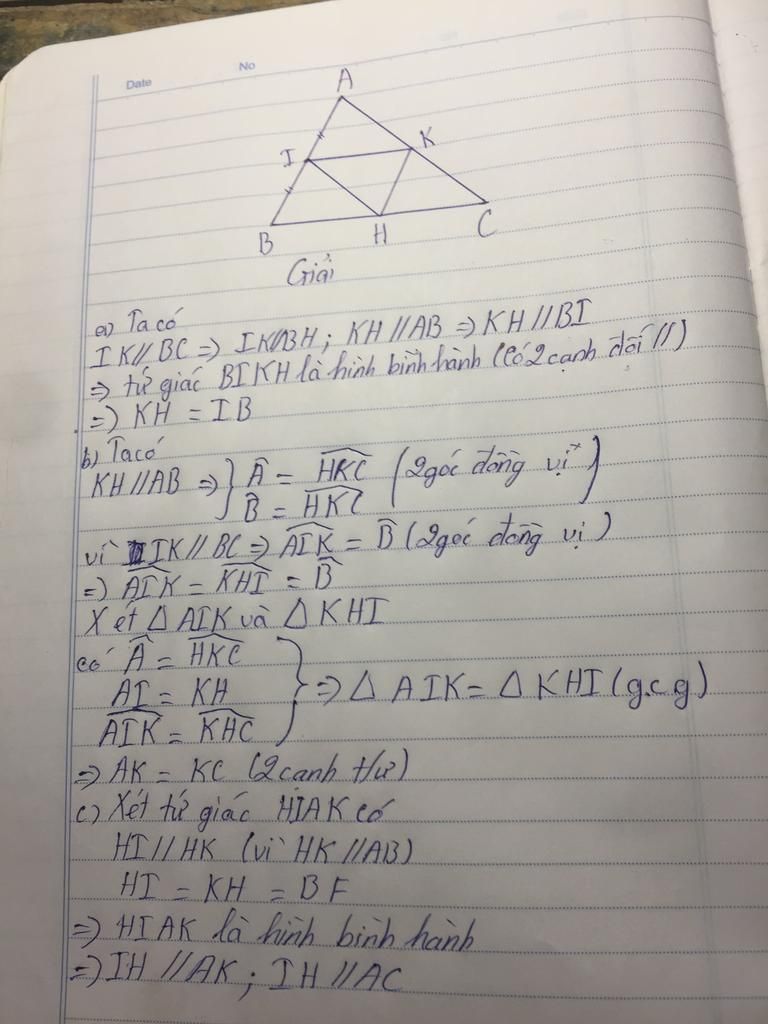 Date
No
A
I
K
B
H
C
Giải
a) Ta có
IK // BC => IK//BH ; KH // AB => KH // BI
=> tứ giác BIKH là hình bình hành (Có 2 cạnh đối //)
=> KH = IB
b) Ta có
KH // AB => } Â = HKC (2 góc đồng vị)
B̂ = HKC
vì IK // BC => AIK = B̂ (2 góc đồng vị)
=> AIK = KHI = B̂
Xét Δ AIK và Δ KHI
có Â = HKC
AI = KH } => Δ AIK = Δ KHI (g.c.g)
AIK = KHC
=> AK = KC (2 cạnh t/ư)
c) Xét tứ giác HIAK có
HI // HK (vì HK // AB)
HI = KH = BF
=> HIAK là hình bình hành
=> IH // AK ; IH // AC